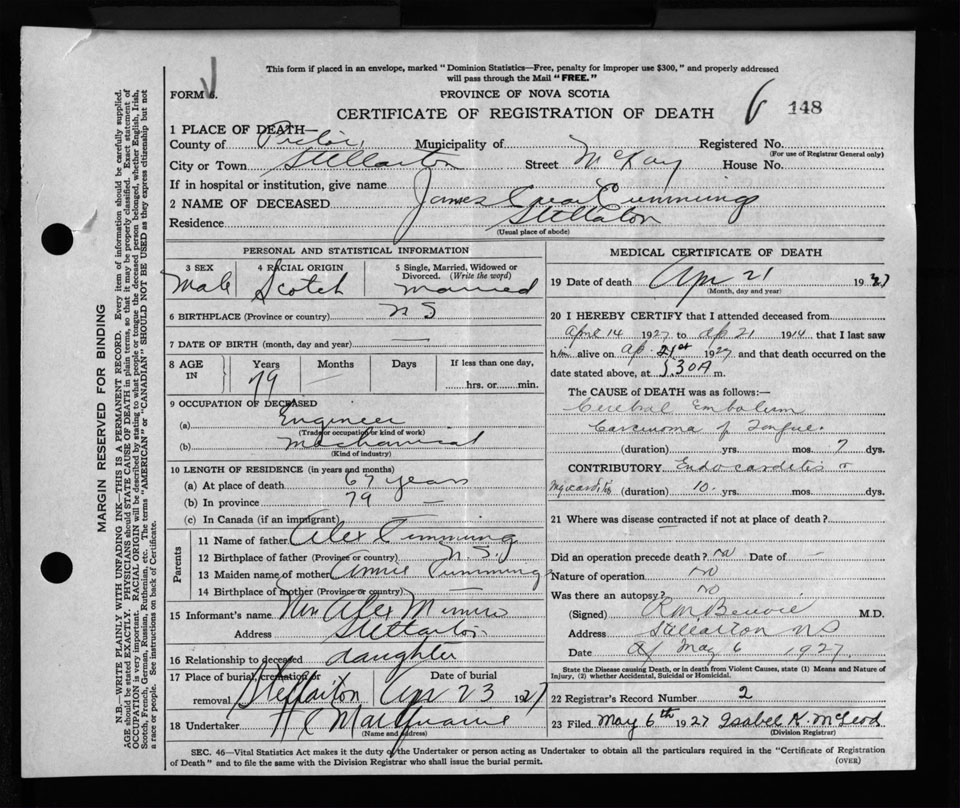 This form if placed in an envelope, marked "Dominion Statistics—Free, penalty for improper use $300," and properly addressed
will pass through the Mail "FREE."
FORM 6.
PROVINCE OF NOVA SCOTIA
CERTIFICATE OF REGISTRATION OF DEATH
6 148
1 PLACE OF DEATH—
County of Pictou, Municipality of Registered No.
(For use of Registrar General only)
City or Town Stellarton Street McKay House No.
If in hospital or institution, give name
2 NAME OF DECEASED James Cummings
Residence Stellarton
(Usual place of abode)
PERSONAL AND STATISTICAL INFORMATION
3 SEX 4 RACIAL ORIGIN 5 Single, Married, Widowed or Divorced. (Write the word)
Male Scotch Married
6 BIRTHPLACE (Province or country) N S
7 DATE OF BIRTH (month, day and year) —
8 AGE IN Years Months Days If less than one day,
79 — hrs. or min.
9 OCCUPATION OF DECEASED
(a) Engineer
(Trade or occupation or kind of work)
(b) Mechanical
(Kind of industry)
10 LENGTH OF RESIDENCE (in years and months)
(a) At place of death 67 years
(b) In province 79
(c) In Canada (if an immigrant) —
Parents
11 Name of father Alex Cummings
12 Birthplace of father (Province or country) N.S.
13 Maiden name of mother Annie Cummings
14 Birthplace of mother (Province or country)
15 Informant's name Mrs Alex
Address Stellarton
16 Relationship to deceased daughter
17 Place of burial, cremation or removal Stellarton Date of burial Apr 23 1927
18 Undertaker
(Name and address)
MEDICAL CERTIFICATE OF DEATH
19 Date of death Apr 21 1927
(Month, day and year)
20 I HEREBY CERTIFY that I attended deceased from
April 14 1927 to Ap 21 1914 that I last saw
him alive on Ap. 21st 1927 and that death occurred on
date stated above, at 30 A m.
The CAUSE OF DEATH was as follows:
Cerebral Embolism
Carcinoma of Tongue.
(duration) yrs. mos. 7 dys.
CONTRIBUTORY Endocarditis or
Myocarditis (duration) 10 yrs. mos. dys.
21 Where was disease contracted if not at place of death?
Did an operation precede death? no Date of —
Nature of operation no
Was there an autopsy? no
(Signed) M.D.
Address Stellarton N S
Date May 6 1927
State the Disease causing Death, or in death from Violent Causes, state (1) Means and Nature of
Injury, (2) whether Accidental, Suicidal or Homicidal.
22 Registrar's Record Number 2
23 Filed May 6th 1927 Isabel K. McLeod
(Division Registrar)
SEC. 46—Vital Statistics Act makes it the duty of the Undertaker or person acting as Undertaker to obtain all the particulars required in the "Certificate of Registration
of Death" and to file the same with the Division Registrar who shall issue the burial permit.
(OVER)
MARGIN RESERVED FOR BINDING
N.B.—WRITE PLAINLY WITH UNFADING INK—THIS IS A PERMANENT RECORD. Every item of information should be carefully supplied.
AGE should be stated EXACTLY. PHYSICIANS should STATE CAUSE OF DEATH in plain terms, so that it may be properly classified. Exact statement of
OCCUPATION is very important. RACIAL ORIGIN will be described by stating to what people or tongue the deceased person belonged, whether English, Irish,
Scotch, French, German, Russian, Ruthenian, etc. The terms "AMERICAN" or "CANADIAN" SHOULD NOT BE USED as they express citizenship but not
a race or people. See instructions on back of Certificate.